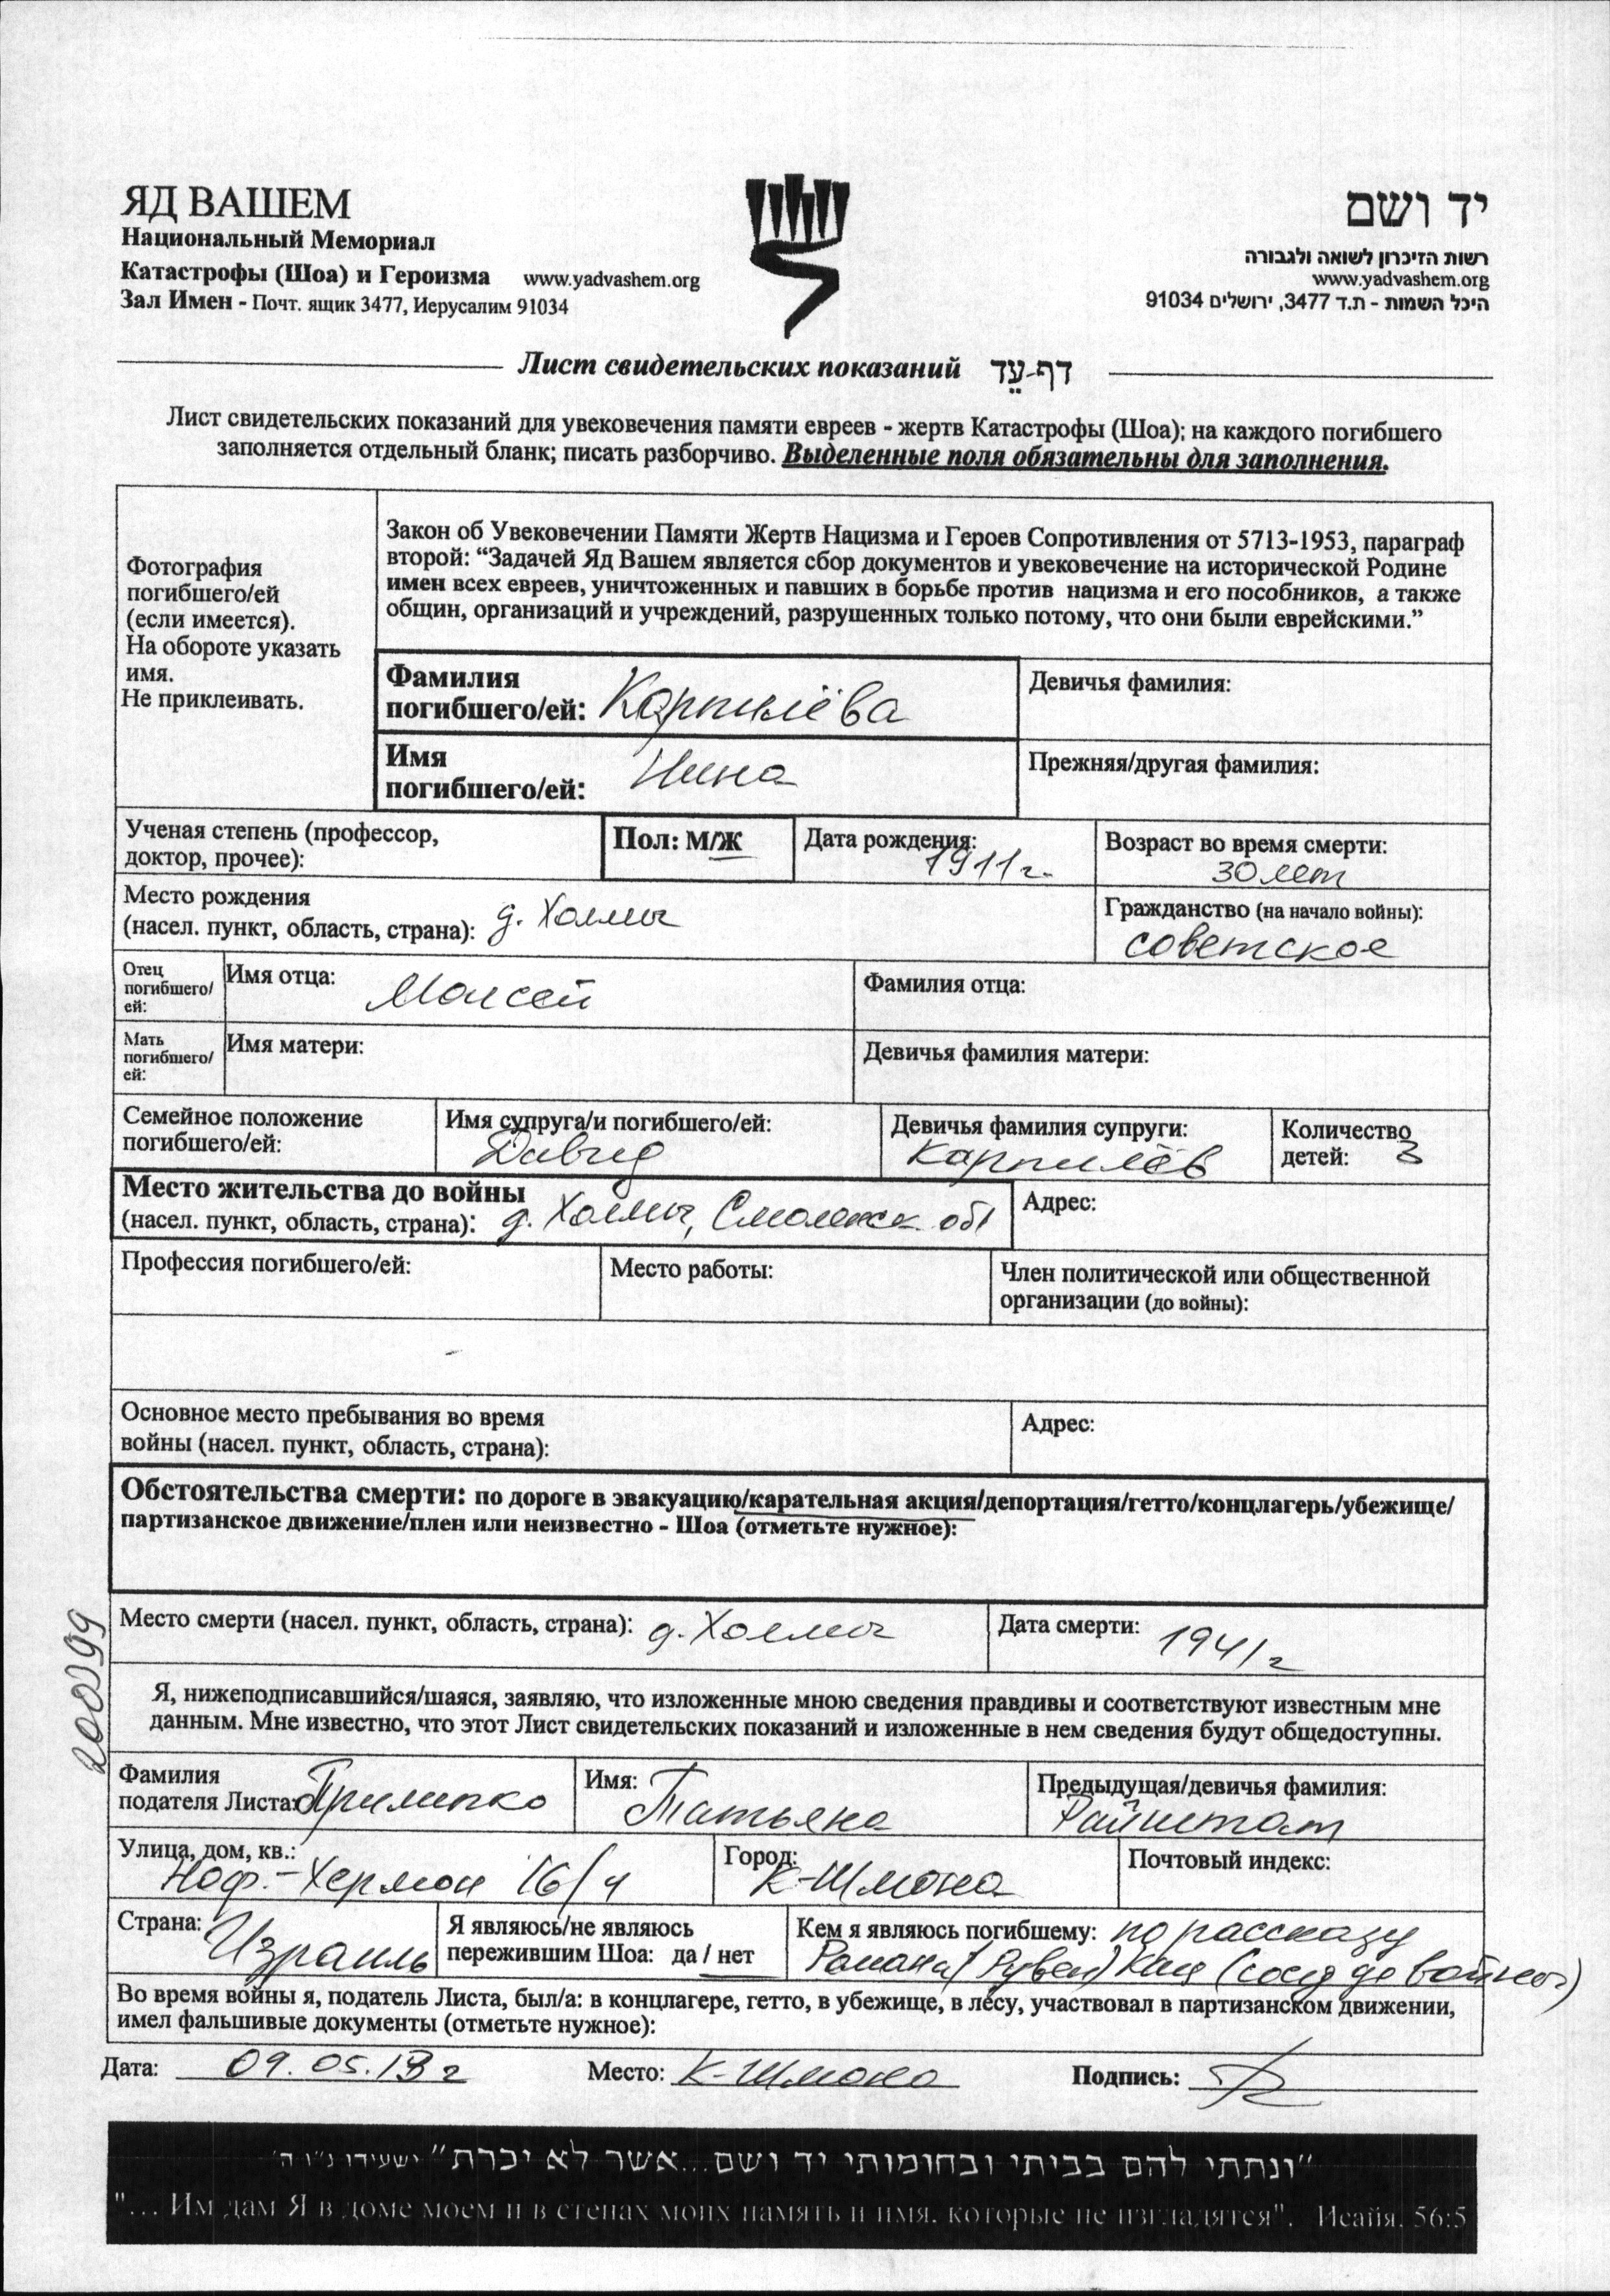 ЯД ВАШЕМ
Национальный Мемориал
Катастрофы (Шоа) и Героизма www.yadvashem.org
Зал Имен - Почт. ящик 3477, Иерусалим 91034
יד ושם
רשות הזיכרון לשואה ולגבורה
www.yadvashem.org
היכל השמות - ת.ד 3477, ירושלים 91034
Лист свидетельских показаний דף-עֵד
Лист свидетельских показаний для увековечения памяти евреев - жертв Катастрофы (Шоа); на каждого погибшего
заполняется отдельный бланк; писать разборчиво. Выделенные поля обязательны для заполнения.
Фотография
погибшего/ей
(если имеется).
На обороте указать
имя.
Не приклеивать.
Закон об Увековечении Памяти Жертв Нацизма и Героев Сопротивления от 5713-1953, параграф
второй: “Задачей Яд Вашем является сбор документов и увековечение на исторической Родине
имен всех евреев, уничтоженных и павших в борьбе против нацизма и его пособников, а также
общин, организаций и учреждений, разрушенных только потому, что они были еврейскими.”
Фамилия
погибшего/ей: Карпилёва
Девичья фамилия:
Имя
погибшего/ей: Нина
Прежняя/другая фамилия:
Ученая степень (профессор,
доктор, прочее):
Пол: М/Ж
Дата рождения:
1911г.
Возраст во время смерти:
30 лет
Место рождения
(насел. пункт, область, страна): д. Холмы
Гражданство (на начало войны):
советское
Отец
погибшего/
ей:
Имя отца: Моисей
Фамилия отца:
Мать
погибшего/
ей:
Имя матери:
Девичья фамилия матери:
Семейное положение
погибшего/ей:
Имя супруга/и погибшего/ей:
Давид
Девичья фамилия супруги:
Карпилёв
Количество
детей: 3
Место жительства до войны
(насел. пункт, область, страна): д. Холмы, Смоленск. обл
Адрес:
Профессия погибшего/ей:
Место работы:
Член политической или общественной
организации (до войны):
Основное место пребывания во время
войны (насел. пункт, область, страна):
Адрес:
Обстоятельства смерти: по дороге в эвакуацию/карательная акция/депортация/гетто/концлагерь/убежище/
партизанское движение/плен или неизвестно - Шоа (отметьте нужное):
Место смерти (насел. пункт, область, страна): д. Холмы
Дата смерти: 1941г
200099
Я, нижеподписавшийся/шаяся, заявляю, что изложенные мною сведения правдивы и соответствуют известным мне
данным. Мне известно, что этот Лист свидетельских показаний и изложенные в нем сведения будут общедоступны.
Фамилия
подателя Листа: Прилипко
Имя: Татьяна
Предыдущая/девичья фамилия:
Райштат
Улица, дом, кв.:
Ноф.-Хермон 16/4
Город:
К-Шмона
Почтовый индекс:
Страна: Израиль
Я являюсь/не являюсь
пережившим Шоа: да / нет
Кем я являюсь погибшему: по рассказу
Романа (Рувен) Кац (сосед до войны)
Во время войны я, податель Листа, был/а: в концлагере, гетто, в убежище, в лесу, участвовал в партизанском движении,
имел фальшивые документы (отметьте нужное):
Дата: 09.05.13г Место: К-Шмона Подпись:
"ונתתי להם בביתי ובחומותי יד ושם...אשר לא יכרת" ישעיהו נ"ו ה'
"... Им дам Я в доме моем и в стенах моих память и имя, которые не изгладятся". Исайя, 56:5